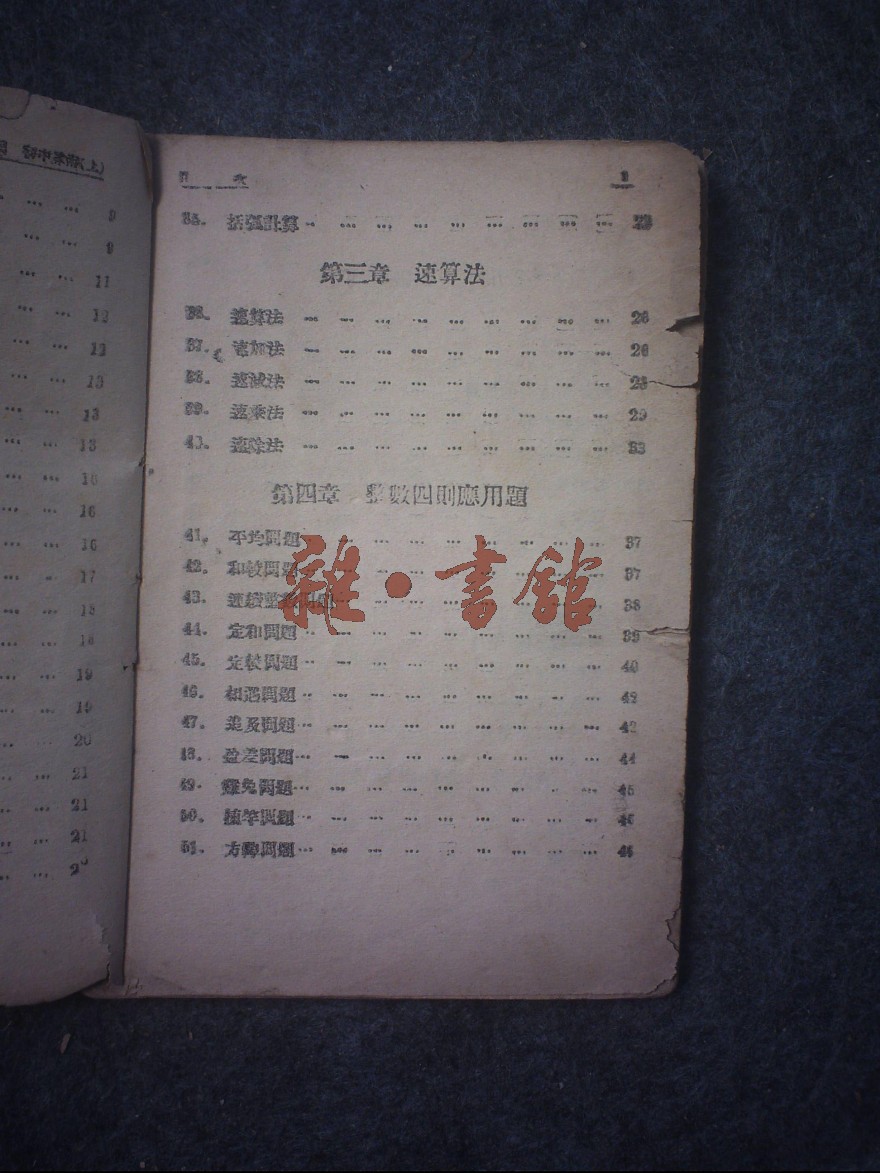 初中算術(上)
9
9
11
12
12
13
13
13
16
16
16
17
18
18
19
19
20
21
21
21
目 次
35. 括弧計算 … … … … … … … … …
第三章 速算法
36. 速算法 … … … … … … … … … 26
37. 速加法 … … … … … … … … … 26
38. 速減法 … … … … … … … … … 28
39. 速乘法 … … … … … … … … … 29
40. 速除法 … … … … … … … … … 33
第四章 整數四則應用題
41. 平均問題 … … … … … … … … 37
42. 和較問題 … … … … … … … … 37
43. 連續整數問題 … … … … … … … … 38
44. 定和問題 … … … … … … … … … 39
45. 定較問題 … … … … … … … … … 40
46. 相遇問題 … … … … … … … … … 42
47. 追及問題 … … … … … … … … … 43
48. 盈差問題 … … … … … … … … … 44
49. 雞兔問題 … … … … … … … … … 45
50. 植竿問題 … … … … … … … … … 46
51. 方陣問題 … … … … … … … … …
雜·書館